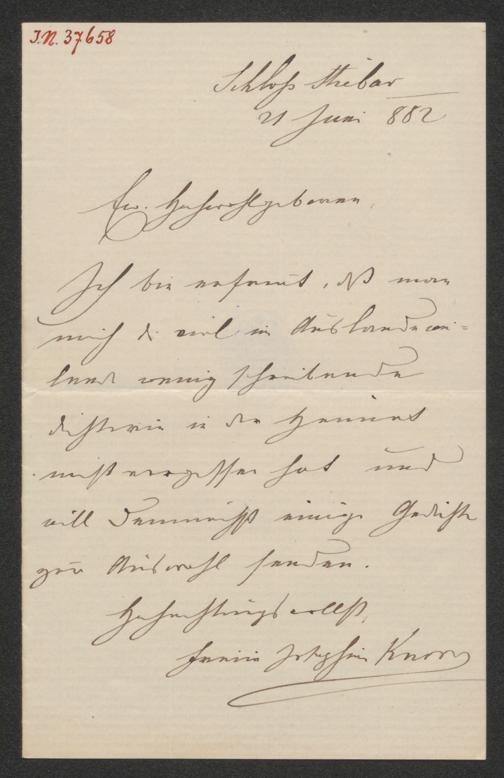 I.N. 37658
Schloß Stiebar
21 Juni 882
Ew. Hochwohlgeboren,
Ich bin erfreut, daß man
mich die viel im Auslande wei-
lende wenig schreibende
Dichterin in der Heimat
nicht vergessen hat und
will demnächst einige Gedichte
zur Auswahl senden.
Hochachtungsvollst,
Freiin Josephine Knorr